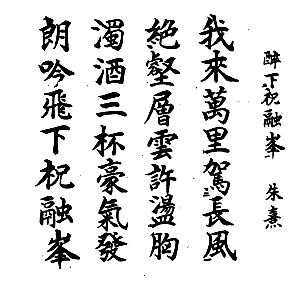 醉下祝融峯 朱熹
我來萬里駕長風
絕壑層雲許盪胸
濁酒三杯豪氣發
朗吟飛下祝融峯